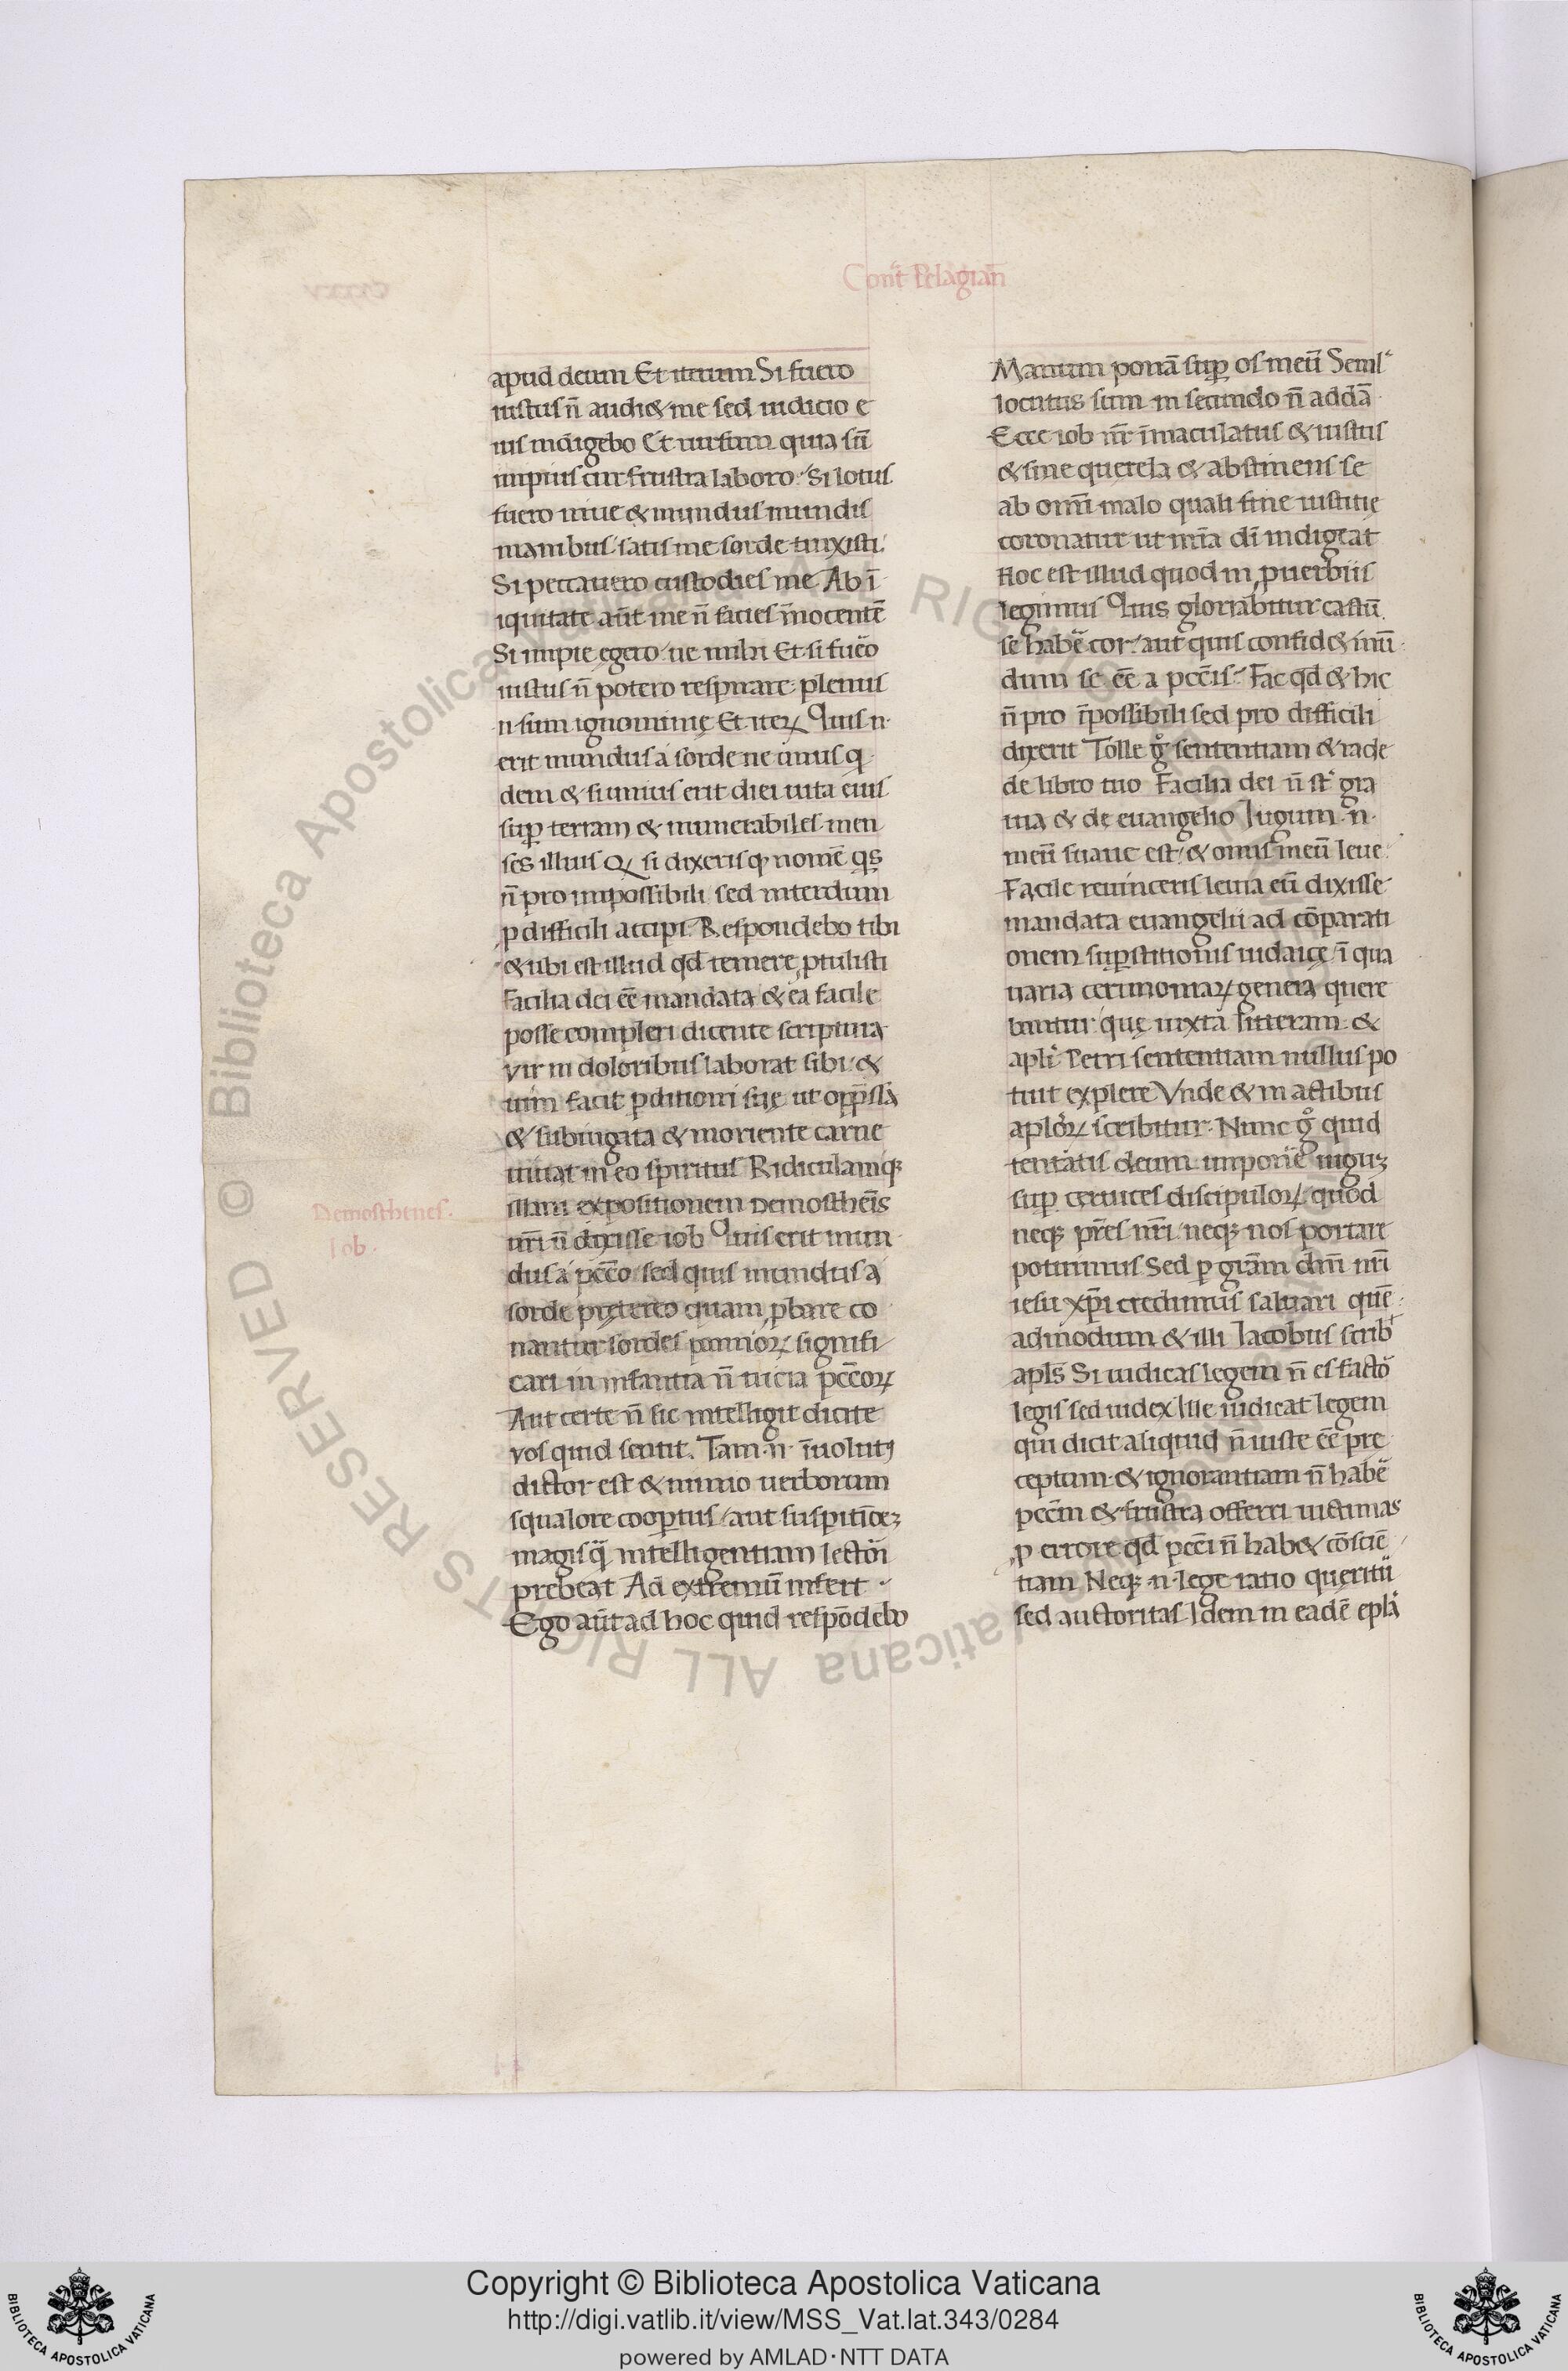 Cont̄ Pelagian̄
apud deum Et iterum Si fuero
iustus n̄ audi& me sed iudicio e
ius indigebo Et rursum quia sū
impius cur frustra laboro. Si lotus
fuero niue & mundus mundis
manibus, satis me sorde tinxisti.
Si peccauero custodies me Ab ī
iquitate aūt me n̄ facies īnocentē
Si impie egero, ue mihi Et si fuĕo
iustus n̄ potero respirare, plenus
.n. sum ignominię Et iteꝝ Quis .n.
erit mundus a sorde ne unus q
dem & si unius erit diei uita eius
suꝑ terram & numerabiles men
ses illius Qꝫ si dixeris ꝙ nomē qs
n̄ pro impossibili sed interdum
ꝓ difficili accipi. Respondebo tibi
& ubi est illud qd̄ temere ꝓtulisti
Facilia dei ēē mandata & ea facile
posse compleri dicente scriptura
vir in doloribus laborat sibi, &
uim facit ꝑditioni suę ut opp̄ssa
& subiugata & moriente carne
uiuat in eo spiritus Ridiculamqꝫ
illam expositionem Demosthēis
nr̄i n̄ dixisse iob Quis erit mun
dus a pcc̄o, sed quis mundus a
sorde pretereo quam ꝓbare co
nantur sordes pannioꝝ signifi
cari in infantia n̄ uicia pcc̄oꝝ
Aut certe n̄ sic intelligit dicite
vos quid sentit. Tam .n. īuolutꝰ
dictor est & nimio uerborum
squalore cooꝑtus, aut suspitiōeꝫ
magis q̄ intelligentiam lectori
prebeat Ad extremū infert
Ego aūt ad hoc quid respōdebo
Demosthenes.
Iob.
Manum ponā suꝑ os meū Seml̄
locutus sum in secundo n̄ addā
Ecce iob nr̄ īmaculatus & iustus
& sine querela & abstinens se
ab omī malo quali fine iustitię
coronatur ut mīa dī indigeat
Hoc est illud quod in ꝓuerbiis
legimus Quis gloriabitur castū
se habē cor, aut quis confid& mū
dum se ēē a pcc̄is. Fac qd̄ & hic
n̄ pro īpossibili sed pro difficili
dixerit Tolle g̊ sententiam & rade
de libro tuo Facilia dei n̄ st̄ gra
uia & de euangelio Iugum .n.
meū suaue est, & onus meū leue.
Facile reuinceris leuia eū dixisse
mandata euangelii ad cōparati
onem suꝑstitionis iudaicę, ī qua
uaria cerimoniaꝝ genera quere
bantur que iuxta litteram &
apl̄i Petri sententiam nullus po
tuit explere Vnde & in actibus
aplōꝝ scribitur. Nunc g̊ quid
tentatis deum imponē iuguꝫ
suꝑ ceruices discipuloꝝ quod
neqꝫ pr̄es nr̄i neqꝫ nos portare
potuimus Sed ꝑ grām dn̄i nr̄i
iesu xp̄i credimus saluari quē
admodum & illi Iacobus scrib̄
apl̄s Si iudicas legem n̄ es factoꝛ
legis sed iudex Ille iudicat legem
qui dicit aliquid n̄ iuste ēē pre
ceptum & ignorantiam n̄ habē
pcc̄m & frustra offerri uictimas
ꝓ errore qd̄ pcc̄i n̄ hab& cōsciē
tiam Neqꝫ .n. lege ratio querit̄
sed auctoritas Idem in eadē epl̄a
Biblioteca Apostolica Vaticana ALL RIGHTS RESERVED ©
Copyright © Biblioteca Apostolica Vaticana
http://digi.vatlib.it/view/MSS_Vat.lat.343/0284
powered by AMLAD·NTT DATA
BIBLIOTECA APOSTOLICA VATICANA
BIBLIOTECA APOSTOLICA VATICANA